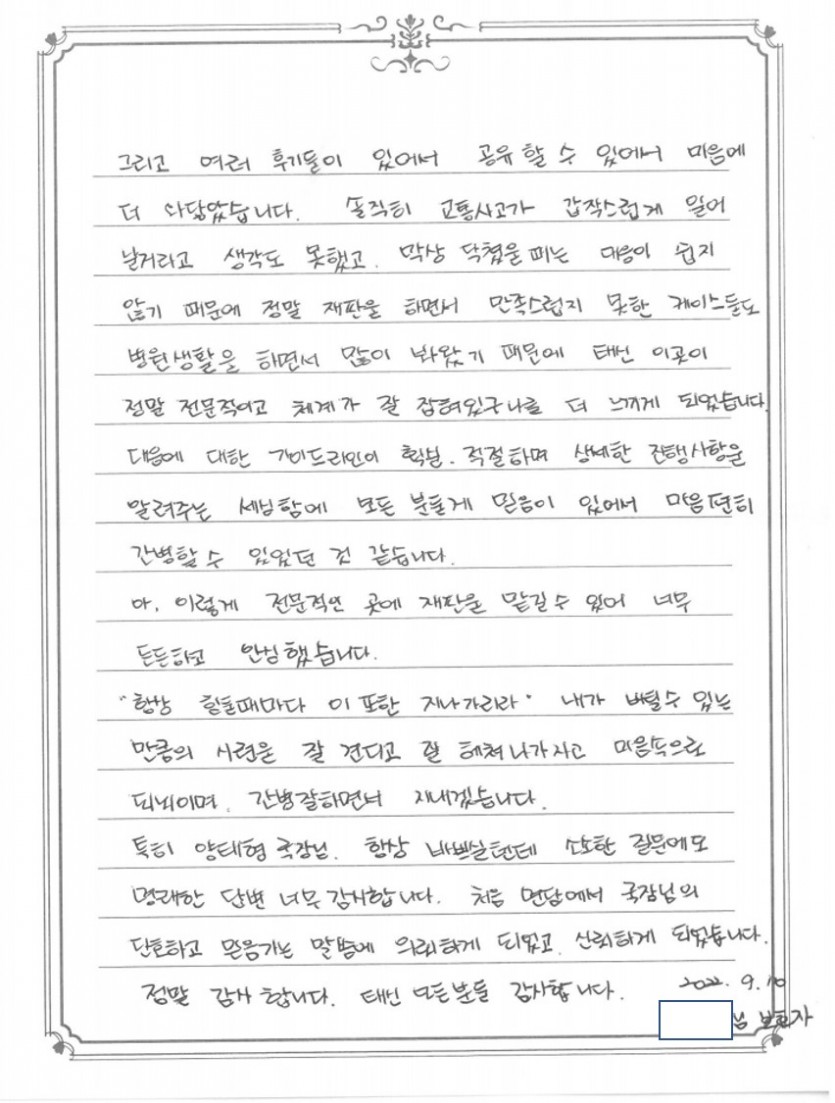 그리고 여러 후기들이 있어서 공유할 수 있어서 마음에
더 와닿았습니다. 솔직히 교통사고가 갑작스럽게 일어
날거라고 생각도 못했고. 막상 닥쳤을때는 대응이 쉽지
않기 때문에 정말 재판을 하면서 만족스럽지 못한 케이스들도
병원생활을 하면서 많이 봐왔기 때문에 태신 이곳이
정말 전문적이고 체계가 잘 잡혀있구나를 더 느끼게 되었습니다.
대응에 대한 가이드라인이 확실. 적절하며 상세한 진행사항을
알려주는 세심함에 모든 분들께 믿음이 있어서 마음편히
간병할 수 있었던 것 같습니다.
아, 이렇게 전문적인 곳에 재판을 맡길 수 있어 너무
든든하고 안심했습니다.
"항상 힘들때마다 이 또한 지나가리라" 내가 버틸수 있는
만큼의 시련은 잘 견디고 잘 헤쳐나가자고 마음속으로
되뇌이며. 간병잘하면서 지내겠습니다.
특히 양태형 국장님. 항상 바쁘실텐데 소소한 질문에도
명쾌한 답변 너무 감사합니다. 처음 면담에서 국장님의
단호하고 믿음가는 말씀에 의뢰하게 되었고. 신뢰하게 되었습니다.
정말 감사합니다. 태신 모든분들 감사합니다. 2022. 9. 10
님 보호자